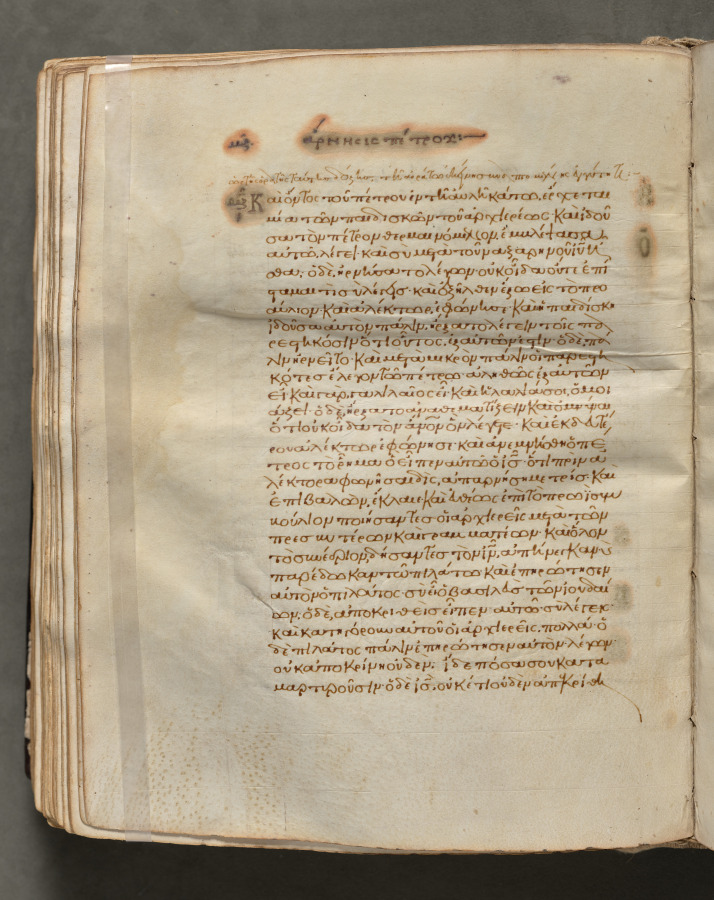 ἄρνησις πέτρου:
Καὶ ὄντος τοῦ πέτρου ἐν τῆ αὐλῆ κάτω, ἔρχεται
μία τῶν παιδισκῶν τοῦ ἀρχιερέως· καὶ ἰδοῦ
σα τὸν πέτρον θερμαινόμενον, ἐμβλέψασα
αὐτῶ, λέγει· καὶ σὺ μετὰ τοῦ ναζαρηνοῦ ἰῦ ἦ
σθα· ὁ δὲ, ἠρνήσατο λέγων· οὐκ οἶδα οὔτε ἐπί
σταμαι τί σὺ λέγεις· καὶ ἐξῆλθεν ἔξω εἰς τὸ προ
αύλιον· καὶ ἀλέκτωρ ἐφώνησε· καὶ ἡ παιδίσκη
ἰδοῦσα αὐτὸν πάλιν, ἤρξατο λέγειν τοῖς πα
ρεστηκόσιν ὅτι οὗτος, ἐξ αὐτῶν ἐστιν· ὁ δὲ, πά
λιν ἠρνεῖτο· καὶ μετὰ μικρὸν πάλιν οἱ παρεστη
κότες ἔλεγον τῶ πέτρω· ἀληθῶς ἐξ αὐτῶν
εἶ· καὶ γαρ γαλιλαῖος εἶ· καὶ ἡ λαλιά σου, ὁμοι
άζει· ὁ δὲ, ἤρξατο ἀναθεματίζειν καὶ ὀμνύειν
ὅτι οὐκ οἶδα τὸν ἄνον ὃν λέγετε· καὶ ἐκ δευτέ
ρου ἀλέκτωρ ἐφώνησε· καὶ ἀνεμνήσθη ὁ πέ
τρος τὸ ῥῆμα ὃ εἶπεν αὐτῶ ὁ ἰς· ὅτι πρὶν ἀ
λέκτορα φωνῆσαι δὶς, ἀπαρνήση με τρίς· καὶ
ἐπιβαλὼν, ἔκλαιε· καὶ εὐθέως ἐπὶ τὸ πρωῒ συμ
βούλιον ποιήσαντες οἱ ἀρχιερεῖς μετὰ τῶν
πρεσβυτέρων καὶ γραμματέων· καὶ ὅλον
τὸ συνέδριον, δήσαντες τὸν ἰν, ἀπήνεγκαν καὶ
παρέδωκαν τῶ πιλάτω· καὶ ἐπηρώτησεν
αὐτὸν ὁ πιλάτος· σὺ εἶ ὁ βασιλεὺς τῶν ἰουδαί
ων; ὁ δὲ, ἀποκριθεὶς εἶπεν αὐτῶ· σὺ λέγεις·
καὶ κατηγόρουν αὐτοῦ οἱ ἀρχιερεῖς, πολλά· ὁ
δὲ πιλάτος πάλιν ἐπηρώτησεν αὐτὸν λέγων·
οὐκ ἀποκρίνη οὐδέν; ἴδε πόσα σου κατα
μαρτυροῦσιν· ὁ δὲ ἰς, οὐκέτι οὐδὲν ἀπεκρίθη